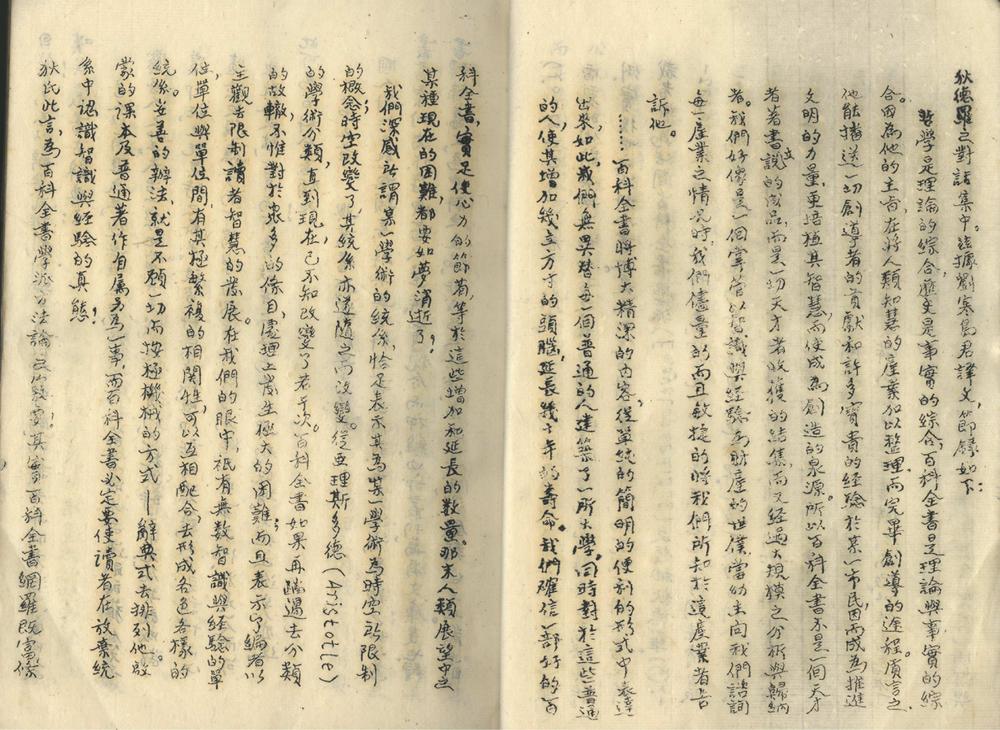 狄德羅之對話集中。法據劉寒島君譯文，節錄如下：
哲學是理論的綜合，歷史是事實的綜合，百科全書是理論與事實的綜
合。因為他的主旨，在將人類知慧的產業加以整理，而完畢創導的途程。質言之，
他能播送一切創導者的貢獻和許多寶貴的經驗於某一市民，因而成為推進
文明的力量，更培植其智慧，而使成為創造的泉源。所以百科全書不是一個天才
者著書立說的成品，而是一切天才者收獲的結集，而又經過大規模之分析與歸納
者。我們好像是一個掌管以智識與經驗為財產的世僕，當幼主向我們諮詢
每一產業之情況時，我們儘量的而且敏捷的將我們所知於這產業者告
訴他。
……百科全書將博大精深的內容，從單純的簡明的便利的形式中表達
出來，如此我們無異替每一個普通的人建築了一所大學。同時對於這些普通
的人，使其增加幾立方寸的頭腦，延長幾十年的壽命。我們確信一部好的百
科全書，實足使心力的節省，等於這些增加和延長的數量。那末人類展望中之
某種現在的困難，都要如夢消逝了！
我們深感所謂某一學術的統係，恰足表示其為某一學術為時空所限制
的概念，時空改變了，其統係亦遂隨之而改變。從亞理斯多德（Aristotle）
的學術分類，直到現在，已不知改變了若干次。百科全書如果再蹈過去分類
的故轍，不惟對於眾多的條目，處理上發生極大的困難，而且表示了編者以
主觀去限制讀者智慧的發展。在我們的眼中，祇有無數智識與經驗的單
位，單位與單位間，有其極繁複的相關性，可以互相配合，去形成各色各樣的
統係。妥善的辦法，就是不顧一切而按極機械的方式——辭典式去排列他。啟
蒙的課本及普通著作自屬另為一事，而百科全書必定要使讀者在放棄統
系中認識智識與經驗的真態！
狄氏此言，為百科全書學派方法論之次發安。其實百科全書網羅既富，條